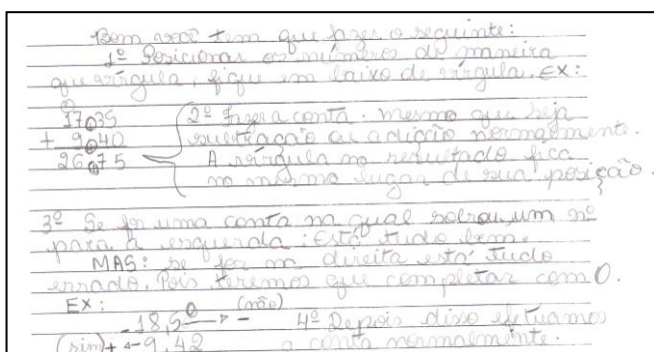 Bom você tem que fazer o seguinte:
1º Posicionar os números de maneira
que vírgula, fique em baixo de vírgula. EX:
17,35
+ 9,40
26,75
2º Fazer a conta. mesmo que seja
subtração ou adicção normalmente.
A vírgula no resultado fica
no mesmo lugar de sua posição.
3º Se for uma conta na qual sobrou um nº
para a esquerda: Está tudo bem.
MAS: se for na direita está tudo
errado. Pois teremos que completar com 0.
EX: (não)
- 18,50 → -
(sim) + ← 9,42
4º Depois disso efetuamos
a conta normalmente.